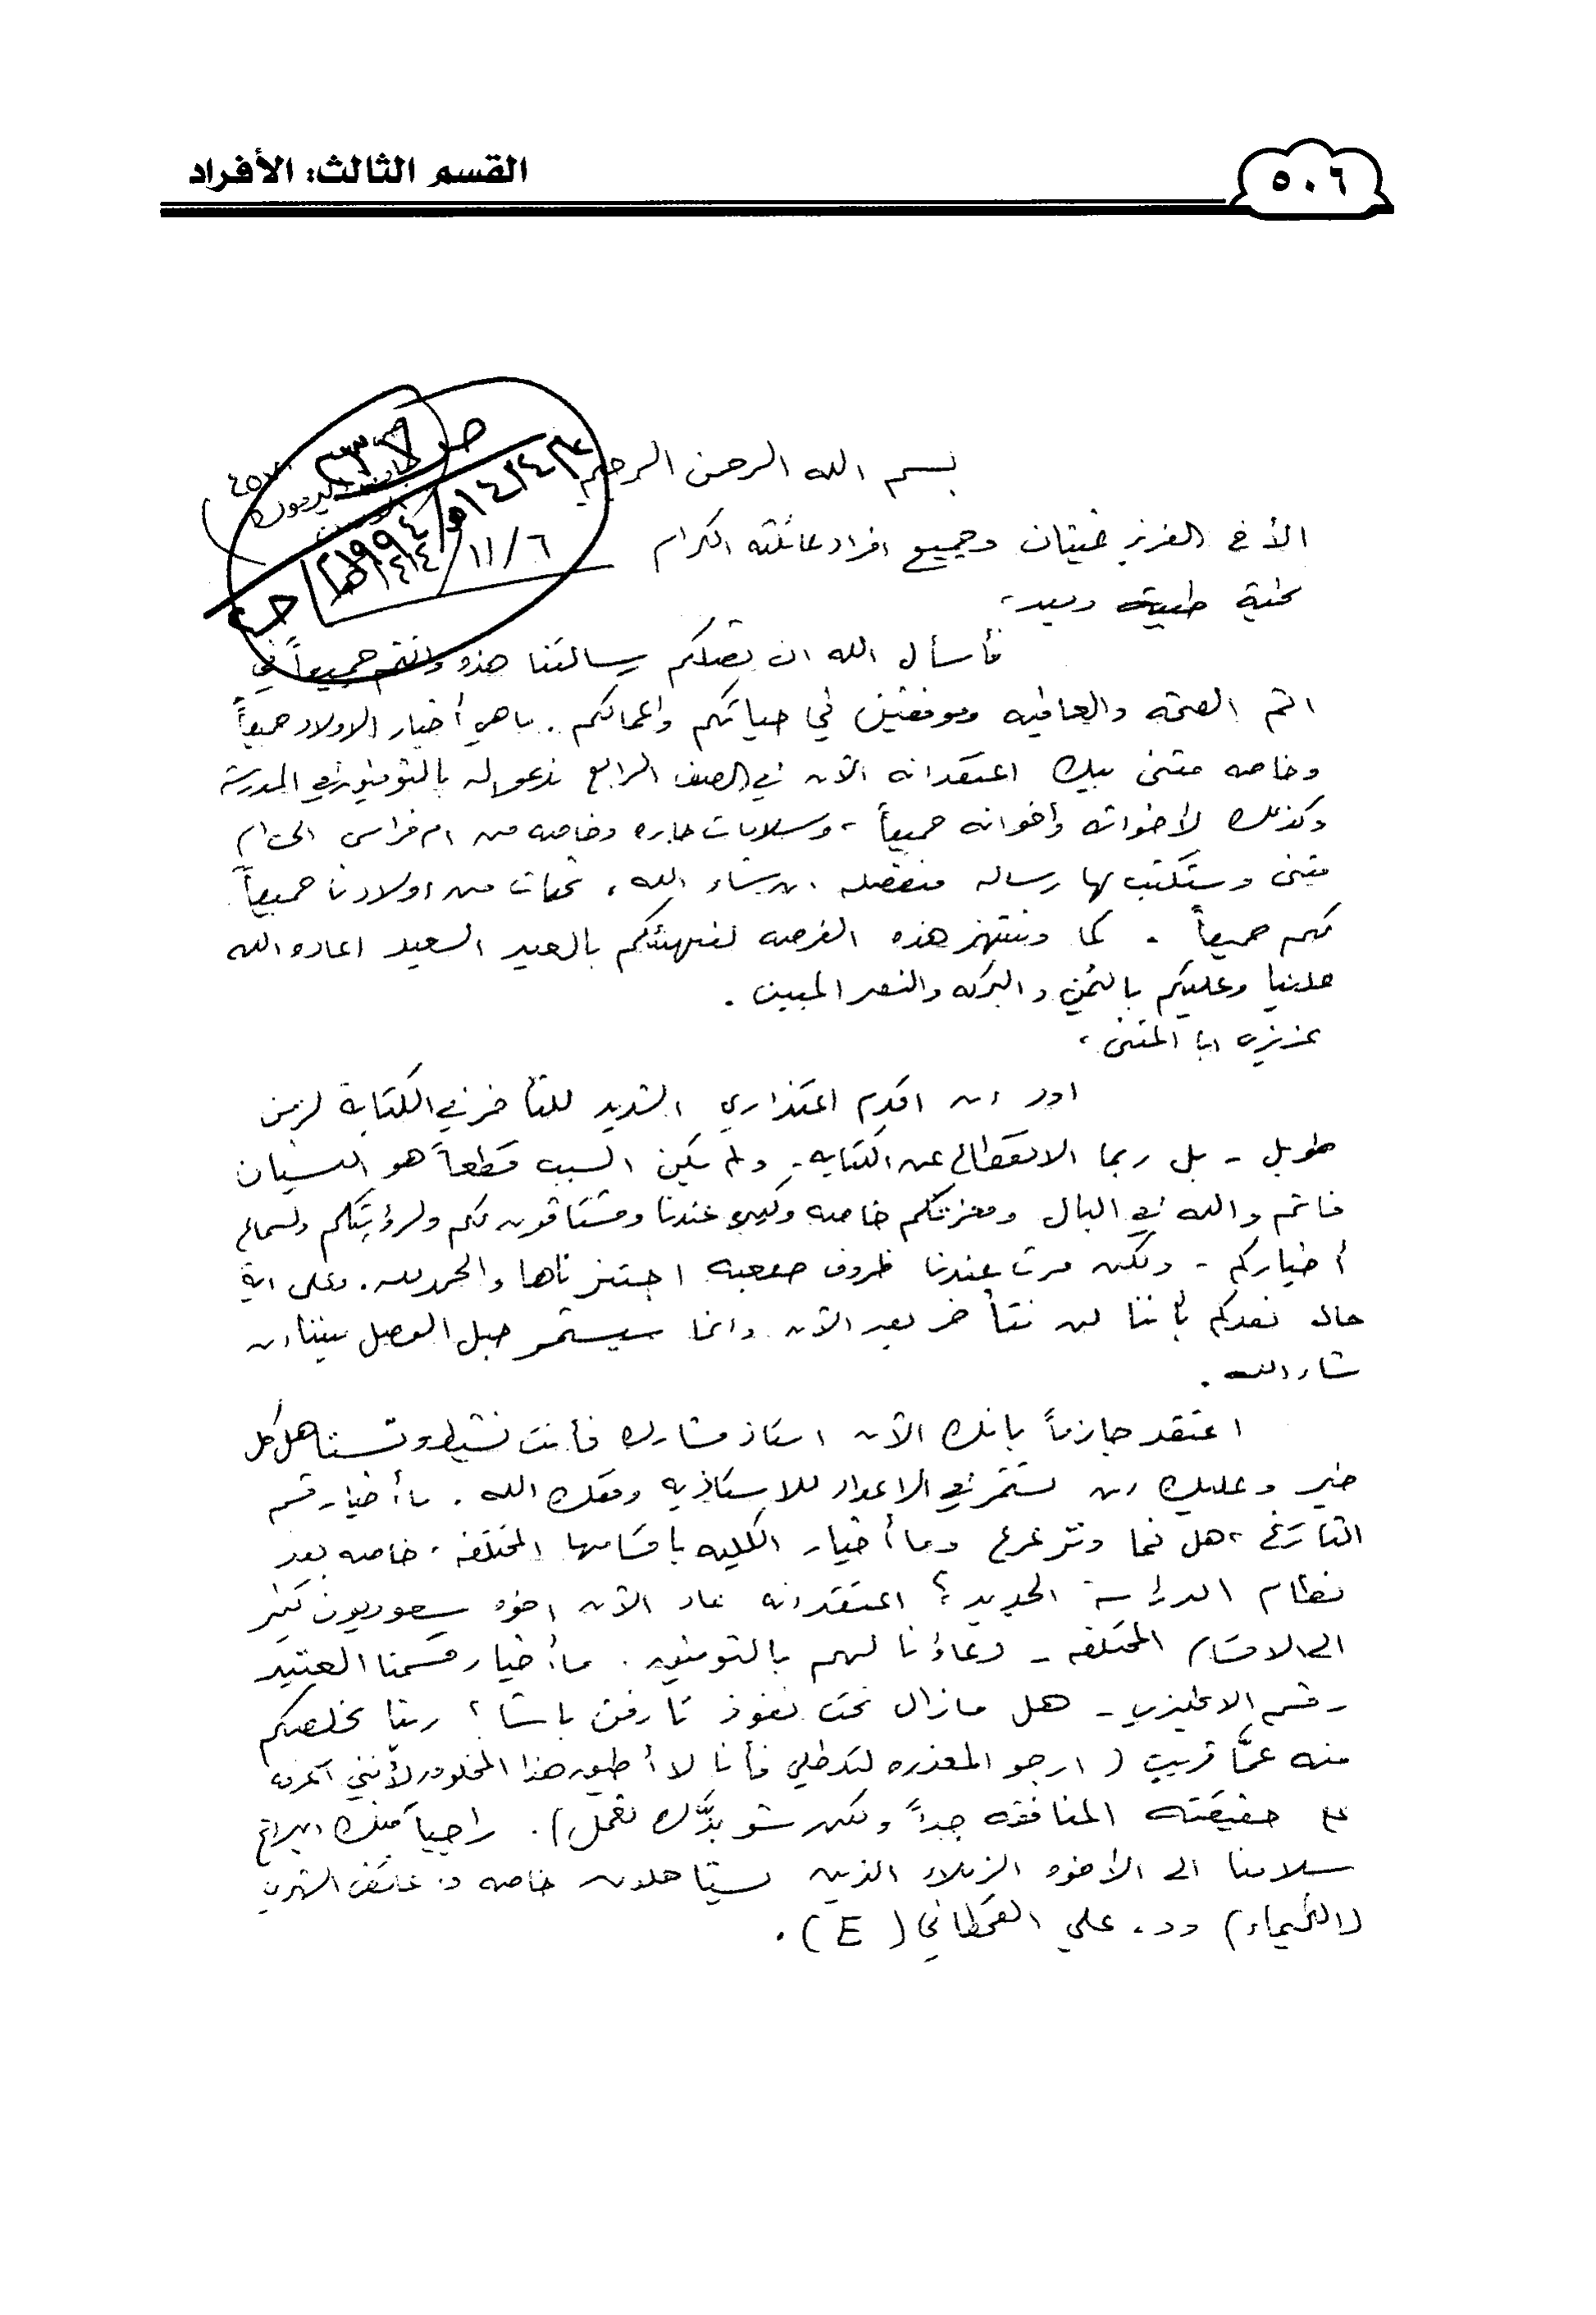 القسم الثالث: الأفراد
٥٠٦
بسم الله الرحمن الرحيم
الأخ العزيز غيثان وجميع افراد عائلته الكرام
١١/٦
تحية طيبة وبعد،
فأسأل الله ان تصلكم رسالتنا هذه وانتم جميعاً في
اتم الصحه والعافيه وموفقين في حياتكم واعمالكم. ما هي أخبار الاولاد جميعاً
وخاصه مثنى بيك اعتقد انه الآن في الصف الرابع ندعو له بالتوفيق في المدرسة
وكذلك لأخواته وأخوانه جميعاً، وسلامات حاره وخاصه من ام فراس الى ام
مثنى وستكتب لها رساله منفصله ان شاء الله، تحيات من اولادنا جميعاً
لكم جميعاً. كما وننتهز هذه الفرصه لنهنئكم بالعيد السعيد اعاده الله
علينا وعليكم باليُمن والبركه والنصر المبين.
عزيزي ابا المثنى،
اود ان اقدم اعتذاري الشديد للتأخر في الكتابة لزمن
طويل - بل ربما الانقطاع عن الكتابه - ولم يكن السبب قطعاً هو النسيان
فانتم والله في البال ومعزتكم خاصه وكبيره عندنا ومشتاقون لكم ولرؤيتكم ولسماع
أخباركم - ولكن مرت عندنا ظروف صعبه اجتزناها والحمد لله. وعلى اية
حال نعدكم بأننا لن نتأخر بعد الآن وانما سيستمر حبل الوصل بيننا ان
شاء الله.
اعتقد جازماً بانك الآن استاذ مشارك فأنت نشيط وتستاهل كل
خير وعليك ان تستمر في الاعداد للاستاذيه وفقك الله. ما أخبار قسم
التاريخ، هل نما وترعرع وما أخبار الكليه باقسامها المختلفه، خاصه بعد
نظام الدراسة الجديد؟ اعتقد انه عاد الآن اخوه سعوديون كثر
الى الاقسام المختلفه - دعاؤنا لهم بالتوفيق. ما أخبار قسمنا العتيد
- قسم الانجليزي - هل مازال تحت نفوذ باشا؟ ربنا يخلصكم
منه عمّا قريب (ارجو المعذره لتدخلي فأنا لا أطيق هذا المخلوق لأنني اعرف
حقيقته المنافقه جداً ولكن شو بدّك تعمل). راجياً منك ابلاغ
سلامنا الى الأخوه الزملاء الذين يستاهلون خاصه د. عائض الشهري
(الكيمياء) ود. علي القحطاني (E).